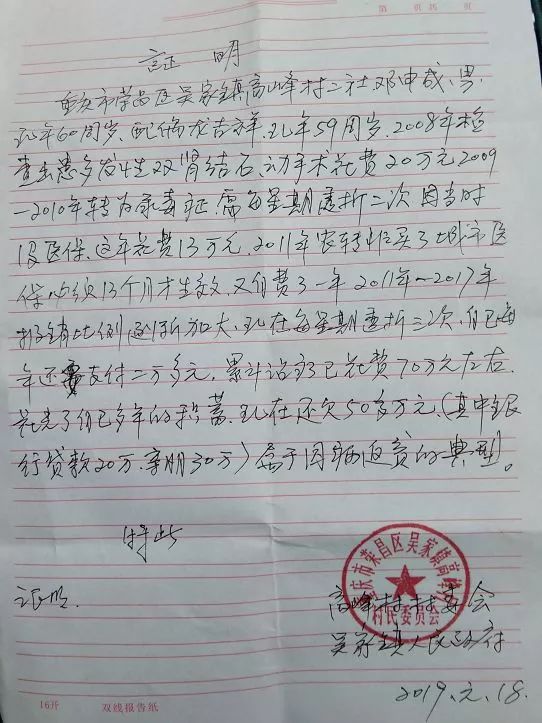 第 页 共 页
証 明
重庆市荣昌区吴家镇高峰村二社邓中成,男,
现年60周岁,配偶龙吉祥,现年59周岁,2008年检
查出患多发性双肾结石,动手术花费20万元2009
—2010年转为尿毒症,需每星期透折二次 因当时
没医保,这年花费13万元,2011年农转非买了城市医
保必须13个月才生效,又自费了一年 2011年~2017年
报销比例逐渐加大,现在每星期透折三次,自己每
年还需支付二万多元,累计治疗已花费70万元左右.
花光了自己多年的积蓄.现在还欠50多万元,(其中银
行贷款20万,亲朋30万)属于因病返贫的典型。
特此
证明.
高峰村村委会
吴家镇人民政府
2019.元.18.
重庆市荣昌区吴家镇高峰村
村民委员会
16开 双线报告纸